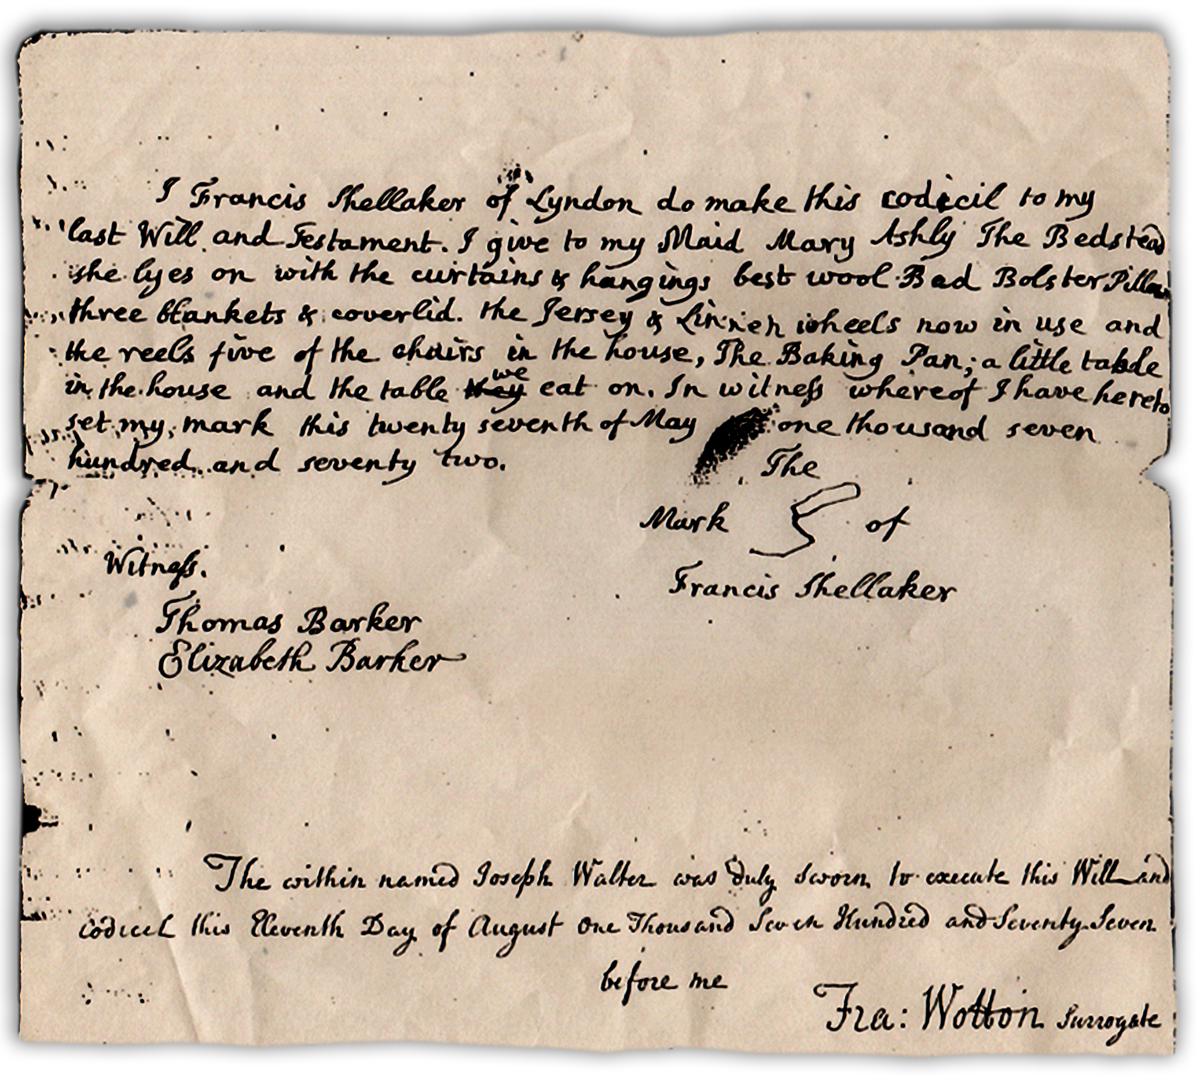 I Francis Shellaker of Lyndon do make this codicil to my
last Will and Testament. I give to my Maid Mary Ashly The Bedstead
she lyes on with the curtains & hangings best wool Bad Bolster Pillow
three blankets & coverlid. the Jersey & Linnen wheels now in use and
the reels five of the chairs in the house, The Baking Pan; a little table
in the house and the table they we eat on. In witness whereof I have hereto
set my mark this twenty seventh of May one thousand seven
hundred and seventy two.
The
Mark of
Francis Shellaker
Witness.
Thomas Barker
Elizabeth Barker
The within named Joseph Walter was duly sworn to execute this Will and
codicil this Eleventh Day of August One Thousand Seven Hundred and Seventy Seven
before me
Fra: Wotton Surrogate